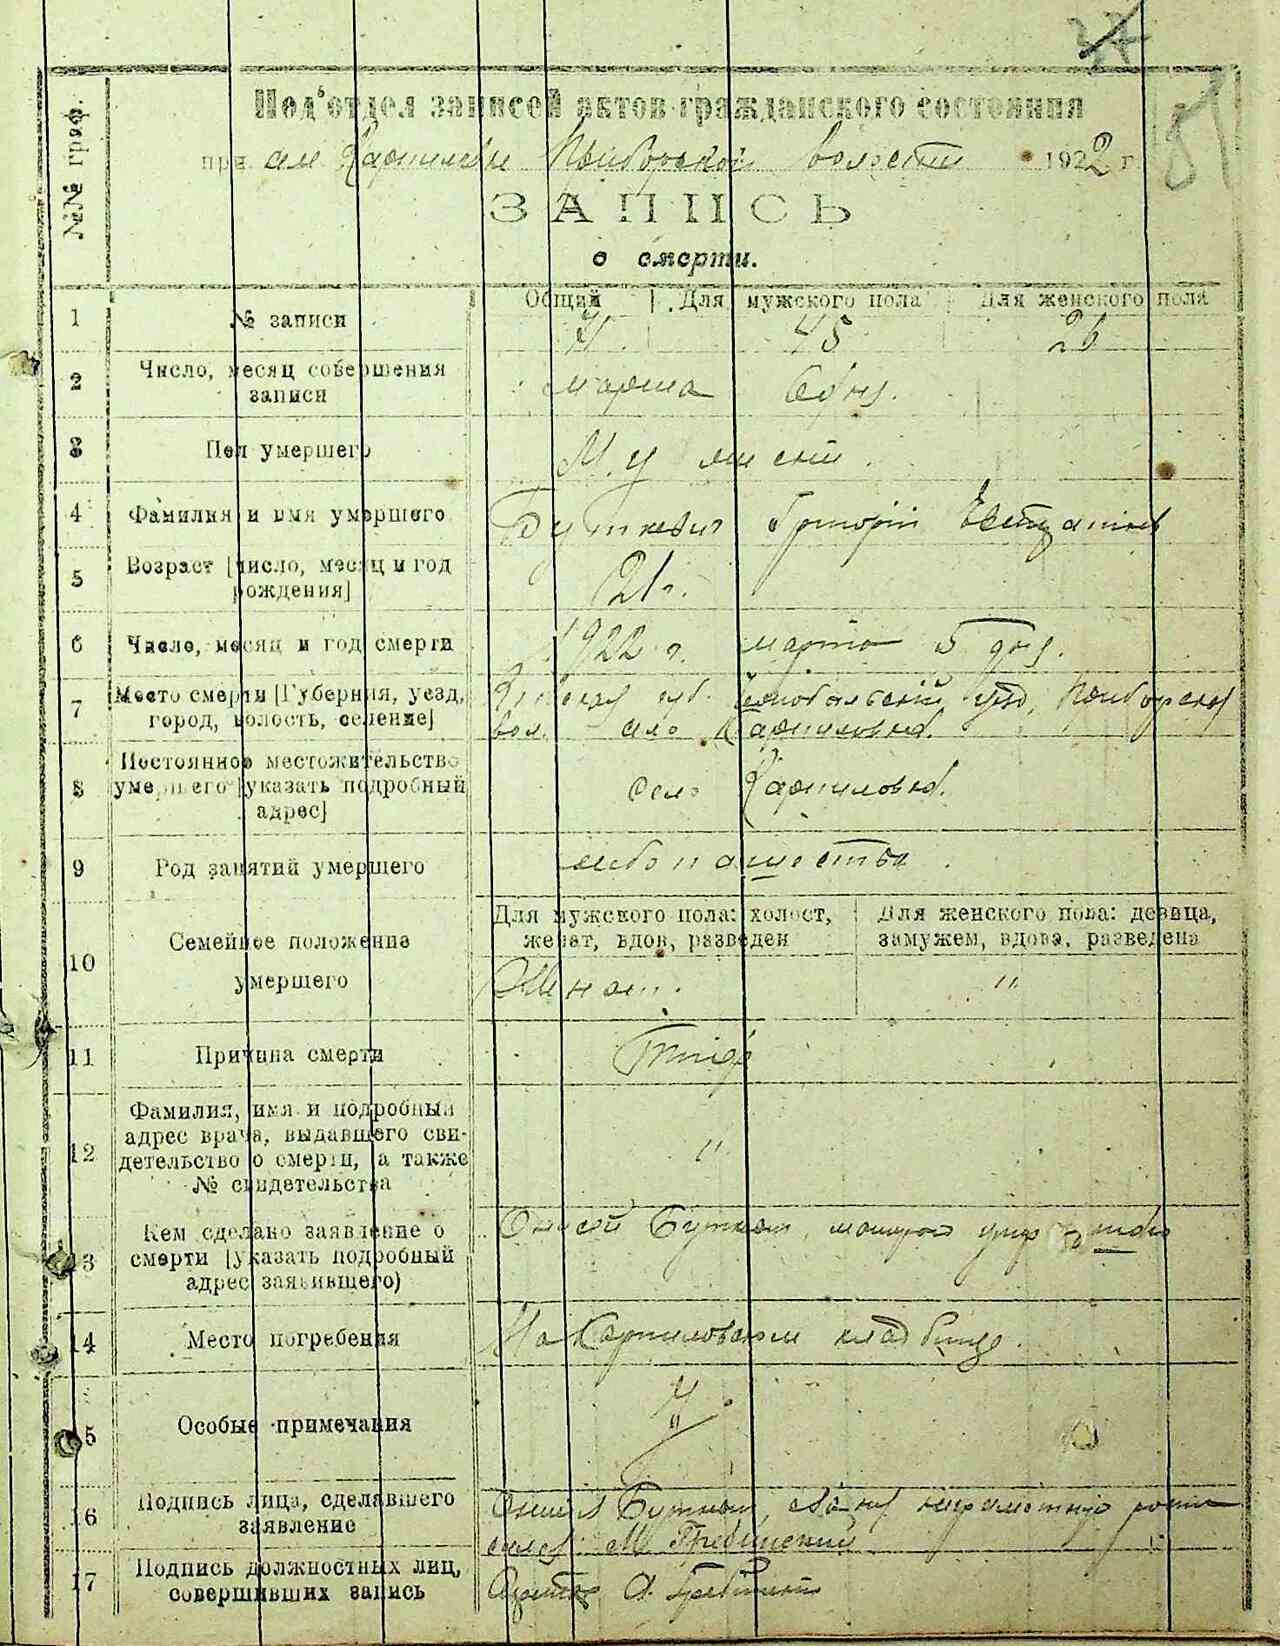 37
Под'отдел записей актов гражданского состояния
при селе Карпиловке Приборской волости 1922 г
№№ граф.
ЗАПИСЬ
о смерти.
Общий Для мужского пола Для женского пола
1 № записи 71 45 26
2 Число, месяц совершения записи марта 6 дня.
3 Пол умершего Мужской.
4 Фамилия и имя умершего Буткевич Григорий
5 Возраст [число, месяц и год рождения] 21 г.
6 Число, месяц и год смерти 1922 г. марта 5 дня.
7 Место смерти [Губерния, уезд, город, волость, селение] губ. Чернобыльский уезд, Приборской
вол. село Карпиловка.
8 Постоянное местожительство умершего [указать подробный адрес] село Карпиловка.
9 Род занятий умершего хлебопашество.
10 Семейное положение умершего
Для мужского пола: холост, женат, вдов, разведен
Для женского пола: девица, замужем, вдова, разведена
Женат. "
11 Причина смерти Тиф
12 Фамилия, имя и подробный адрес врача, выдавшего свидетельство о смерти, а также № свидетельства "
13 Кем сделано заявление о смерти [указать подробный адрес заявившего)
14 Место погребения На Карпиловском кладбище.
15 Особые примечания "
16 Подпись лица, сделавшего заявление неграмотную роспи
сался М. Гребинский
17 Подпись должностных лиц, совершивших запись А. Гребинский